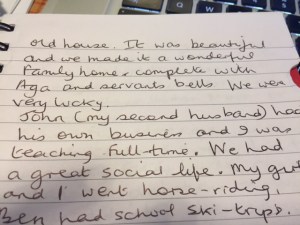 old house. It was beautiful
and we made it a wonderful
family home, complete with
Aga and servants bells We were
very lucky.
John (my second husband) had
his own business and I was
teaching full-time. We had
a great social life. My
and I went horse-riding,
Ben had school ski-trips.